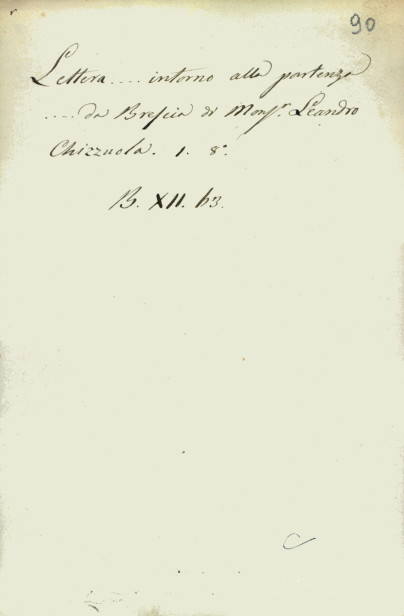 90
Lettera.... intorno alla partenza
.... da Brescia di Monsr. Leandro
Chizzuola. 1. 8°.
B. XII. 63.